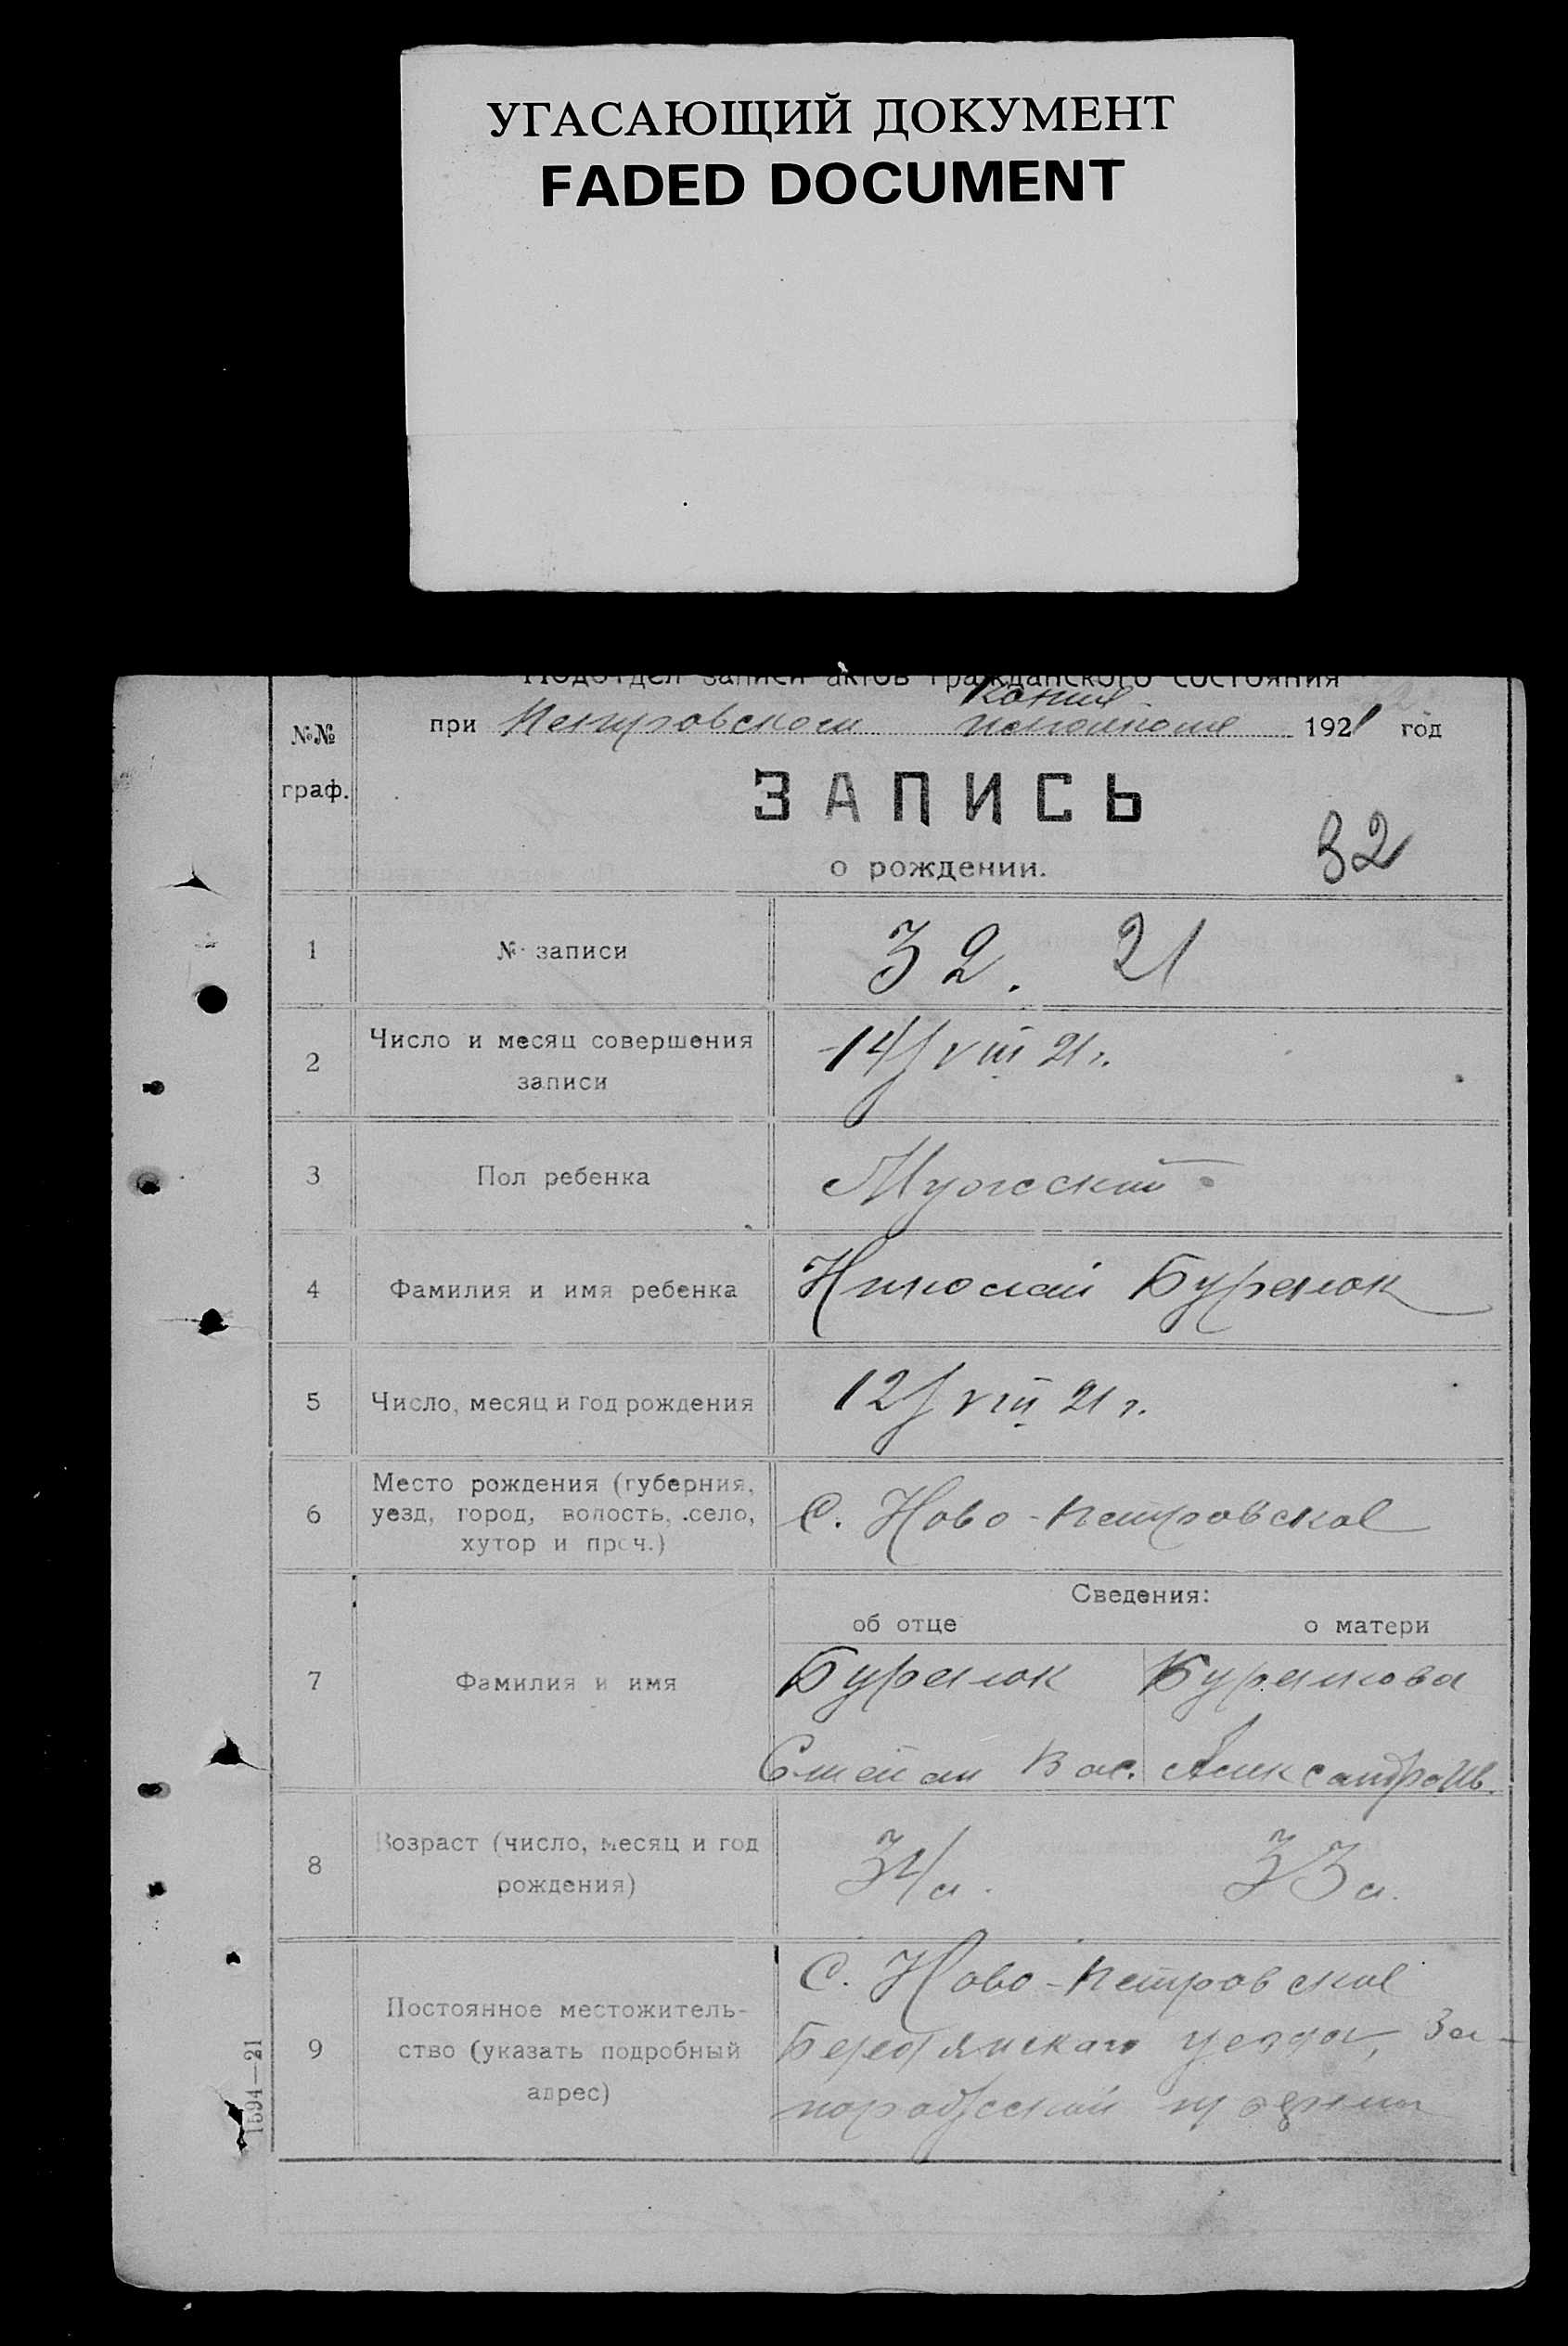 УГАСАЮЩИЙ ДОКУМЕНТ
FADED DOCUMENT
Подотдел записи актов гражданского состояния
Копия
при Петровском исполкоме 1921 год
№№
граф.
ЗАПИСЬ
32
о рождении.
1 № записи 32. 21
2 Число и месяц совершения
записи
14/VIII 21 г.
3 Пол ребенка Мужской
4 Фамилия и имя ребенка Николай Бурелюк
5 Число, месяц и год рождения 12/VIII 21 г.
6 Место рождения (губерния,
уезд, город, волость, село,
хутор и проч.)
С. Ново-Петровское
Сведения:
об отце о матери
7 Фамилия и имя
Бурелюк
Степан Вас.
Александра Ив.
8 Возраст (число, месяц и год
рождения)
34 л. 33 л.
9 Постоянное местожитель-
ство (указать подробный
адрес)
С. Ново-Петровское
Бердянскаго уезда, За-
порожской губернии
1594—21